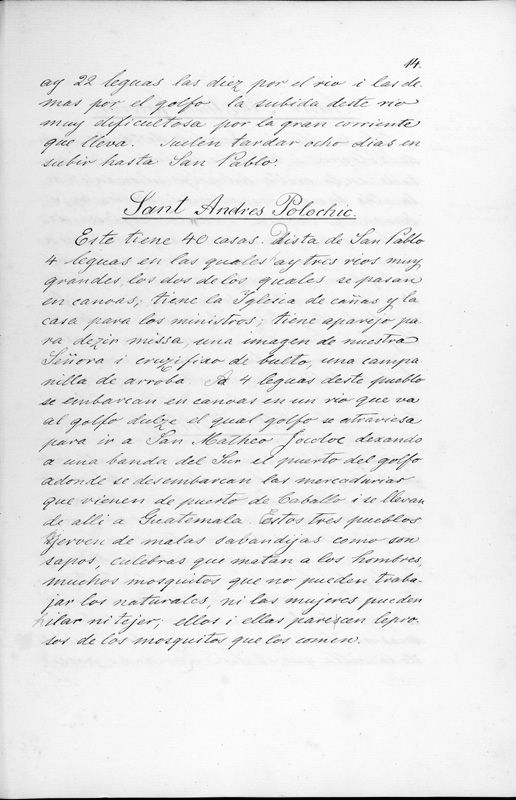 14.
ay 22 leguas las diez por el rio i las de-
mas por el golfo la subida deste rio
muy dificultosa por la gran corriente
que lleva. Suelen tardar ocho dias en
subir hasta San Pablo.
Sant Andres Polochic.
Este tiene 40 casas. Dista de San Pablo
4 leguas en las quales ay tres rios muy
grandes, los dos de los quales se pasan
en canoas; tiene la Iglesia de cañas y la
casa para los ministros; tiene aparejo pa
ra dezir missa, una imagen de nuestra
Señora i cruzifixo de bulto, una campa
nilla de arroba. A 4 leguas deste pueblo
se embarcan en canoas en un rio que va
al golfo dulze el qual golfo se atraviesa
para ir a San Matheo Jocoloc dexando
a una banda del Sur el puerto del golfo
adonde se desembarcan las mercadurias
que vienen de puerto de Caballo i se llevan
de alli a Guatemala. Estos tres pueblos
yerven de malas sabandijas como son
sapos, culebras que matan a los hombres,
muchos mosquitos que no pueden traba-
jar los naturales, ni las mujeres pueden
hilar ni tejer; ellos i ellas parescen lepro-
sos de los mosquitos que los comen.